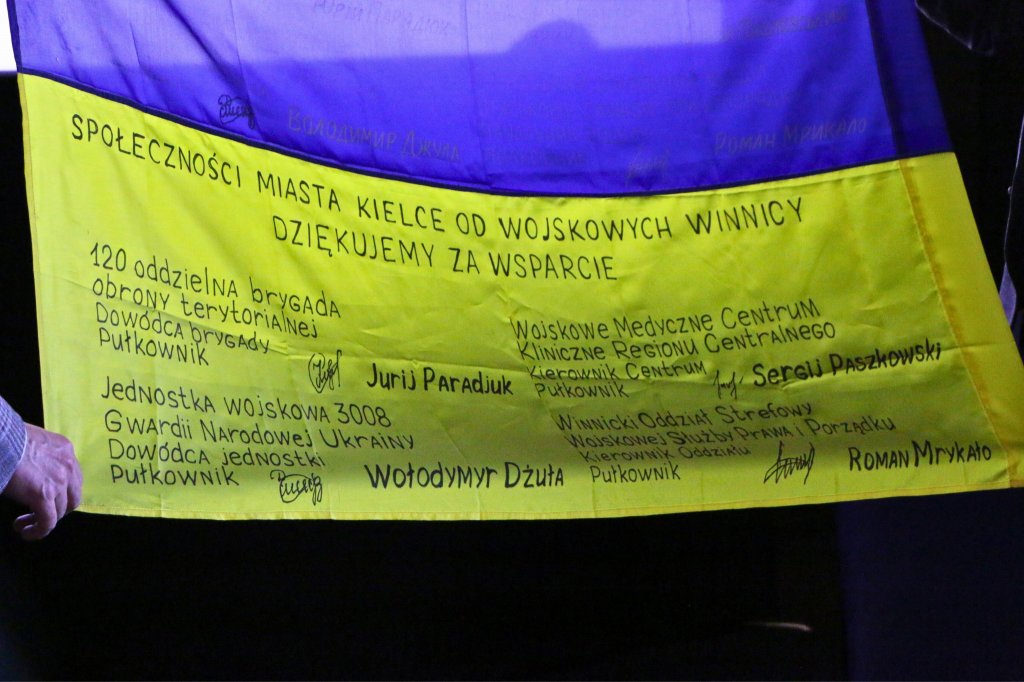 ВОЛОДИМИР ДЖУЛА
РОМАН МРИКАЛО
SPOŁECZNOŚCI MIASTA KIELCE OD WOJSKOWYCH WINNICY
DZIĘKUJEMY ZA WSPARCIE
120 oddzielna brygada
obrony terytorialnej
Dowódca brygady
Pułkownik
Jurij Paradjuk
Wojskowe Medyczne Centrum
Kliniczne Regionu Centralnego
Kierownik Centrum
Pułkownik
Sergij Paszkowski
Jednostka wojskowa 3008
Gwardii Narodowej Ukrainy
Dowódca jednostki
Pułkownik
Wołodymyr Dżuła
Winnicki Oddział Strefowy
Wojskowej Służby Prawa i Porządku
Kierownik Oddziału
Pułkownik
Roman Mrykało